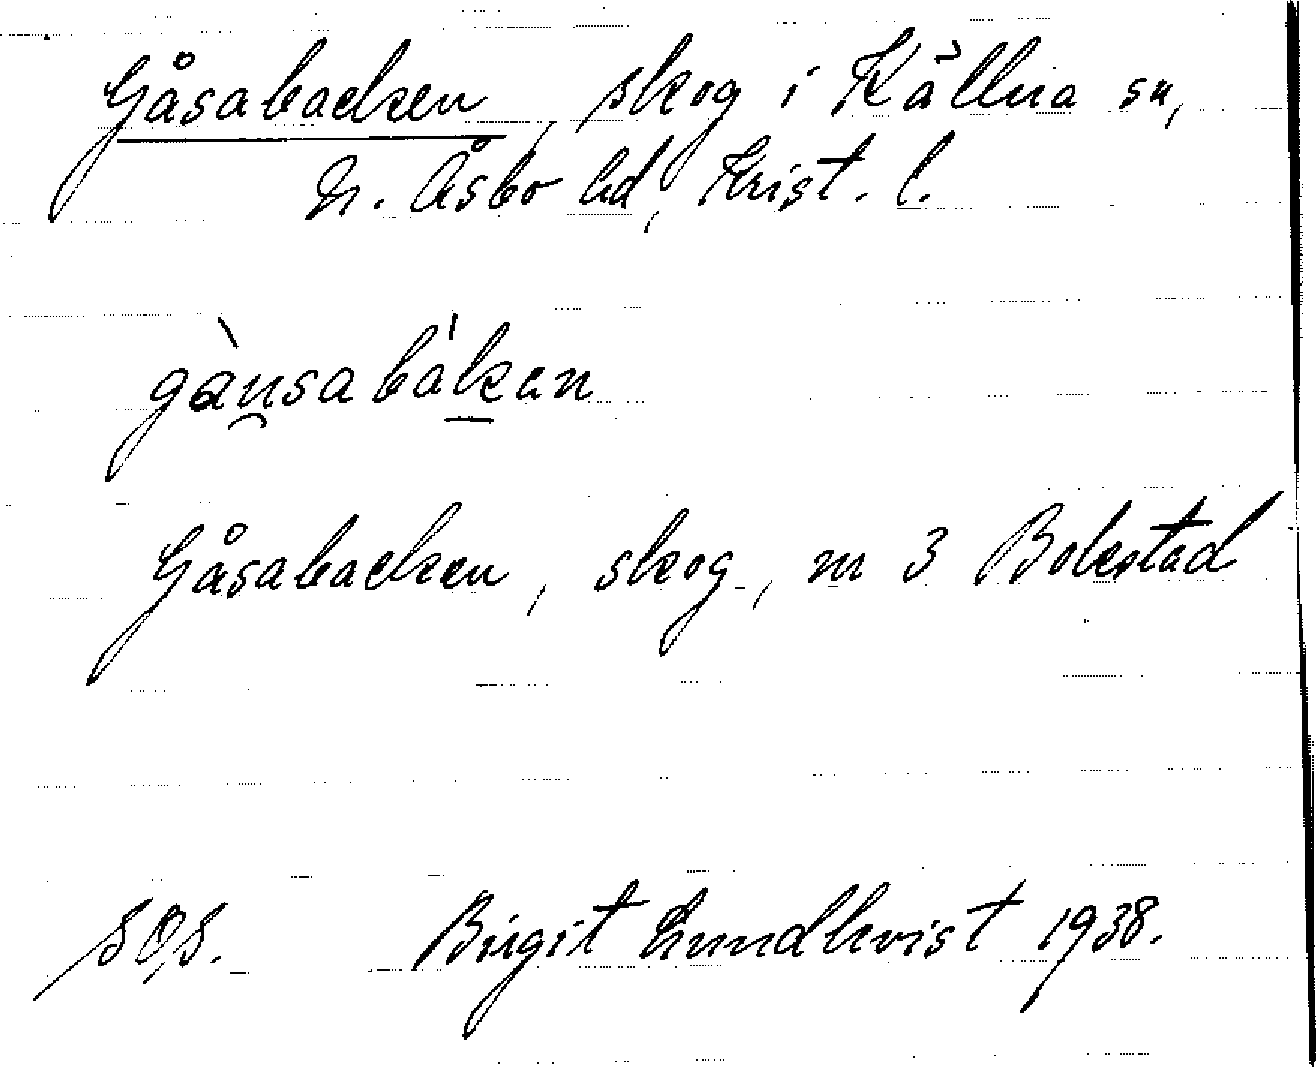 Gåsabacken, skog i Källna sn,
N. Åsbo hd, Krist. l.
gànsabákan
Gåsabacken, skog, m 3 Bokestad
Birgit Lundkvist 1938.